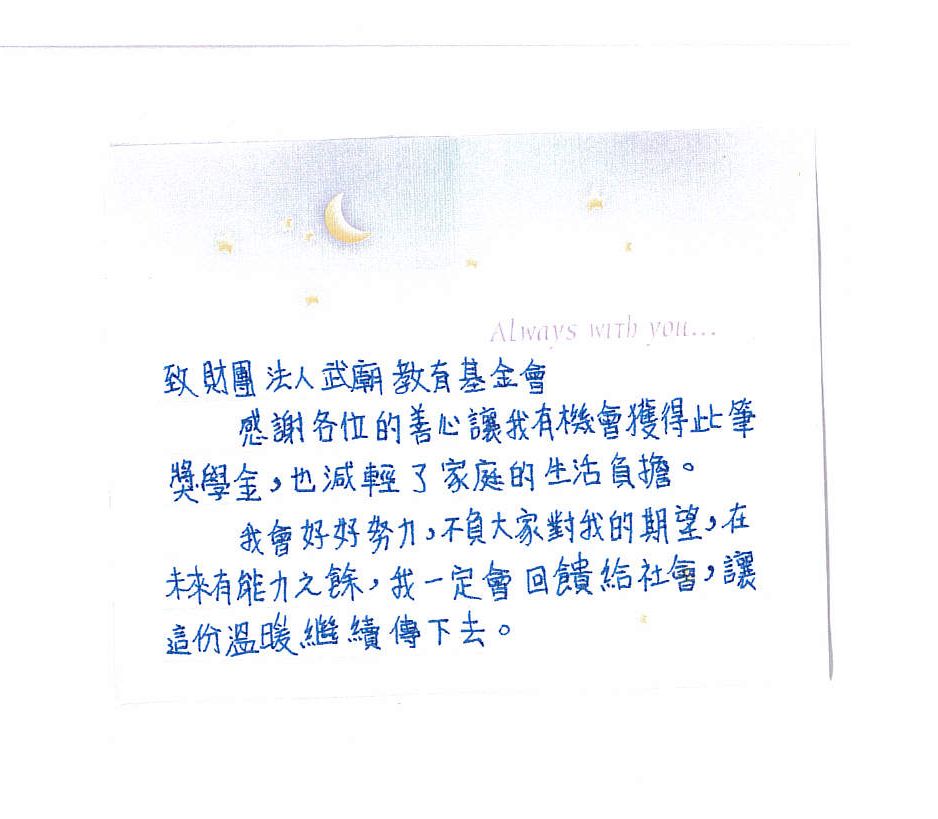 Always with you...
致財團法人武廟教育基金會
感謝各位的善心讓我有機會獲得此筆
獎學金，也減輕了家庭的生活負擔。
我會好好努力，不負大家對我的期望，在
未來有能力之餘，我一定會回饋給社會，讓
這份溫暖繼續傳下去。